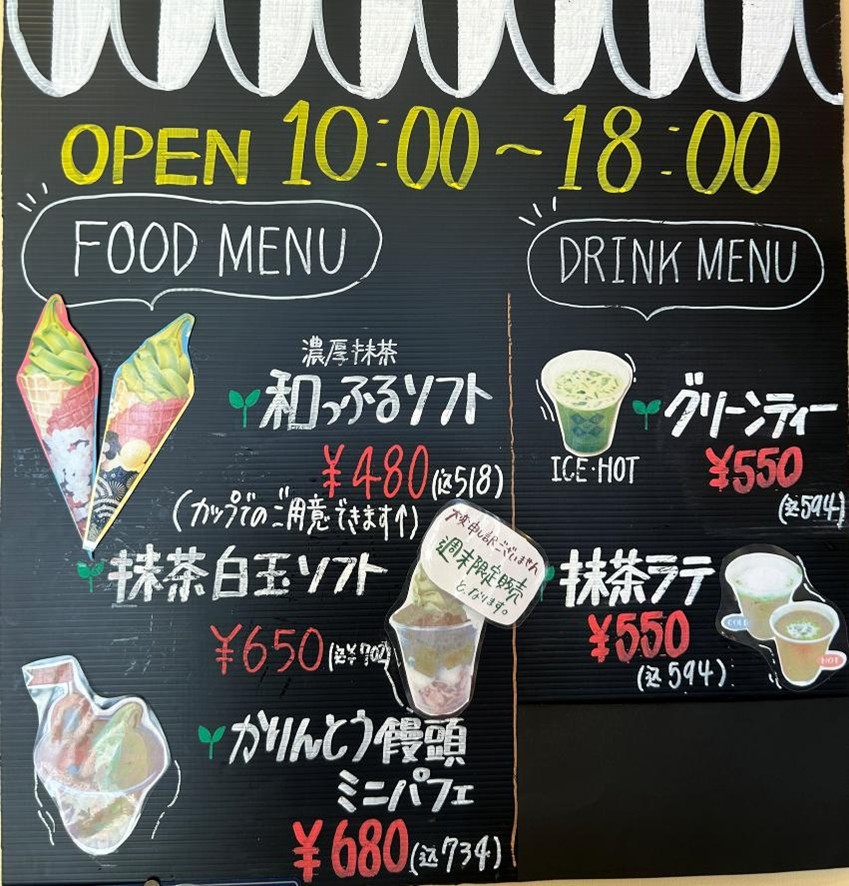 OPEN 10:00~18:00
FOOD MENU
濃厚抹茶
和っふるソフト
¥480(込518)
(カップでのご用意できます↑)
抹茶白玉ソフト
¥650(込¥702)
大変申し訳ございません
週末限定販売
となります。
かりんとう饅頭
ミニパフェ
¥680(込734)
DRINK MENU
ICE・HOT
グリーンティー
¥550
(込594)
抹茶ラテ
¥550
(込594)
COLD
HOT